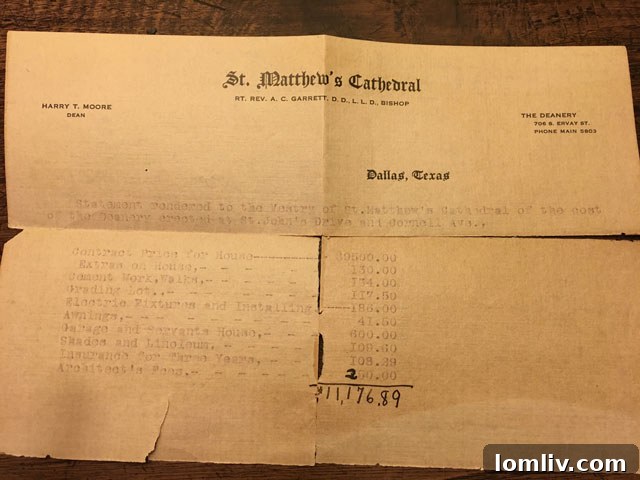 St. Matthew's Cathedral
RT. REV. A. C. GARRETT, D. D., L. L. D., BISHOP
HARRY T. MOORE
DEAN
THE DEANERY
706 S. ERVAY ST.
PHONE MAIN 5903
Dallas, Texas
Statement rendered to the Vestry of St.Matthew's Cathedral of the cost
of the Deanery erected at St.John's Drive and Cornell Ave.,
Contract Price for House
Extras on House,- 130.00
Cement Work,Walks,- 174.00
Grading Lot,,- 117.50
Electric Fixtures and Installing
Awnings,- 41.50
Garage and Servants House,- 600.00
Shades and Linoleum,
Insurance for Three Years,- 108.29
Architect's Fees,- 200.00
$11,176.89
lomliv.com